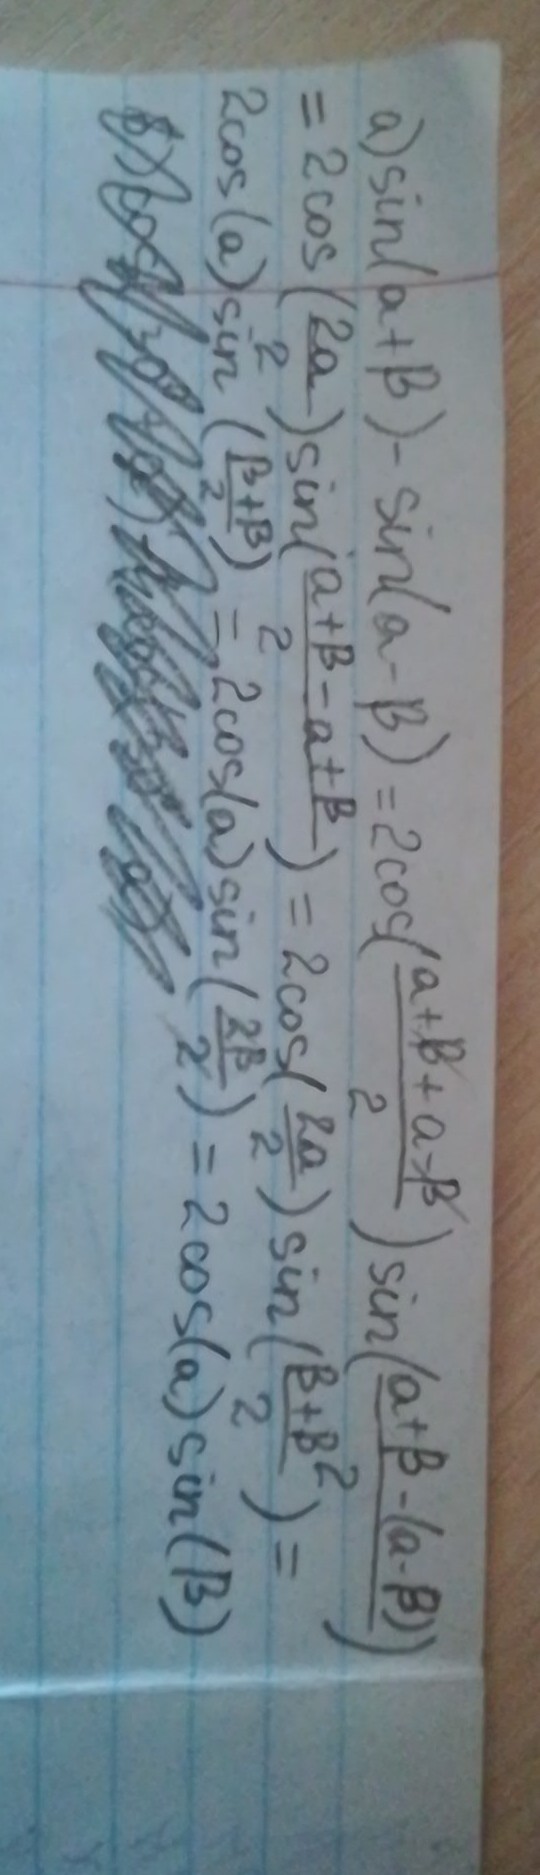 a) sin(a+β) - sin(a-β) = 2cos((a+β+a-β)/2) sin((a+β-(a-β))/2)
= 2cos(2a/2) sin((a+β-a+β)/2) = 2cos(2a/2) sin((β+β)/2) =
2cos(a) sin((β+β)/2) = 2cos(a) sin(2β/2) = 2cos(a) sin(β)